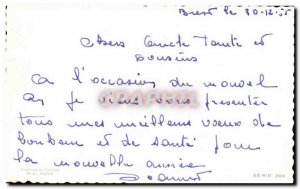 Brest le 30-12-55
Chers Oncle Tante et
Cousins
A l'occasion du nouvel
An je viens vous présenter
tous mes meilleurs vœux de
bonheur et de santé pour
la nouvelle année